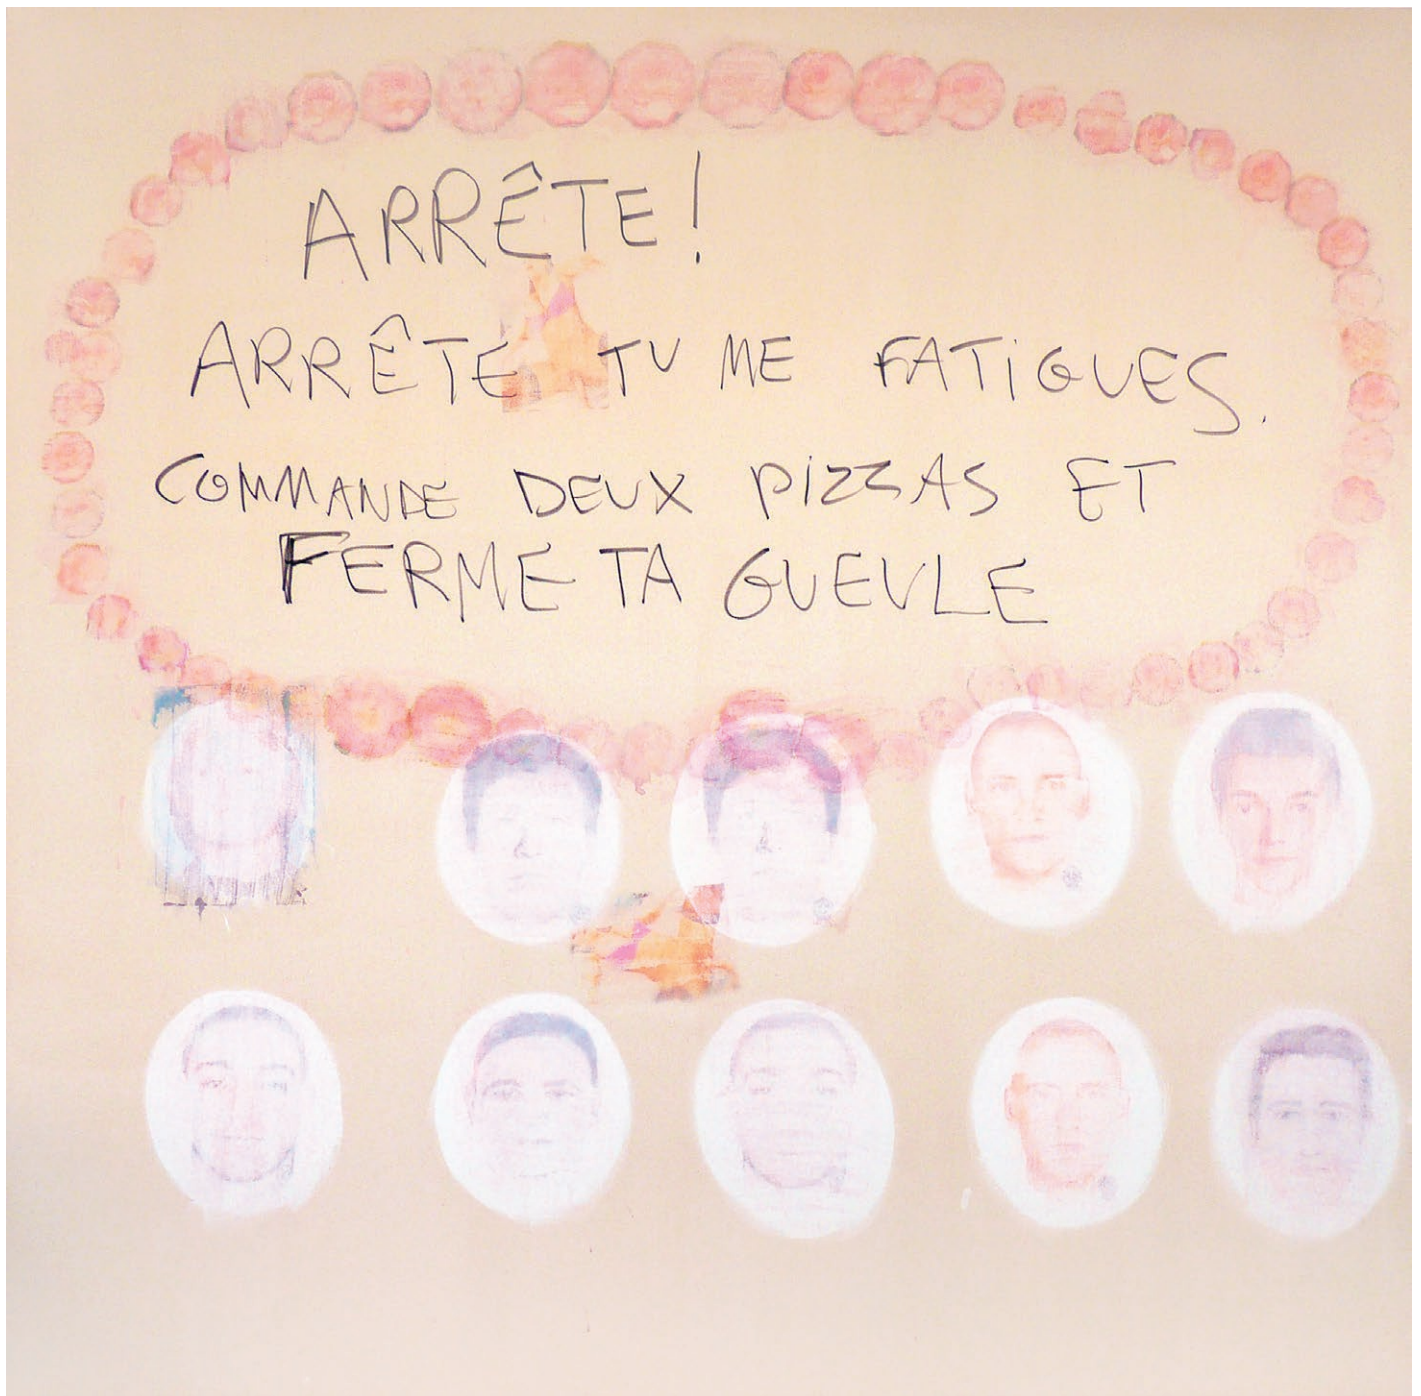 ARRÊTE!
ARRÊTE TU ME FATIGUES.
COMMANDE DEUX PIZZAS ET
FERME TA GUEULE